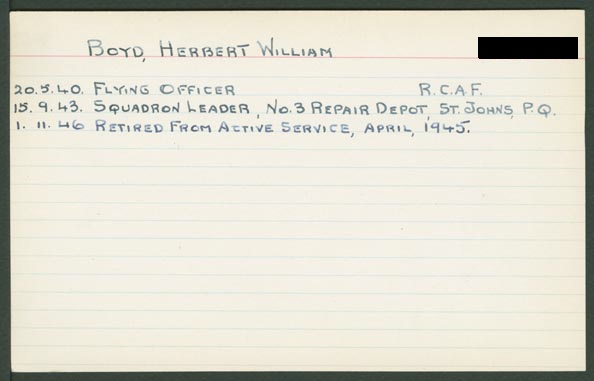 BOYD, HERBERT WILLIAM
20.5.40. FLYING OFFICER R.C.A.F.
15.9.43. SQUADRON LEADER, NO.3 REPAIR DEPOT, ST. JOHNS, P.Q.
1.11.46 RETIRED FROM ACTIVE SERVICE, APRIL, 1945.